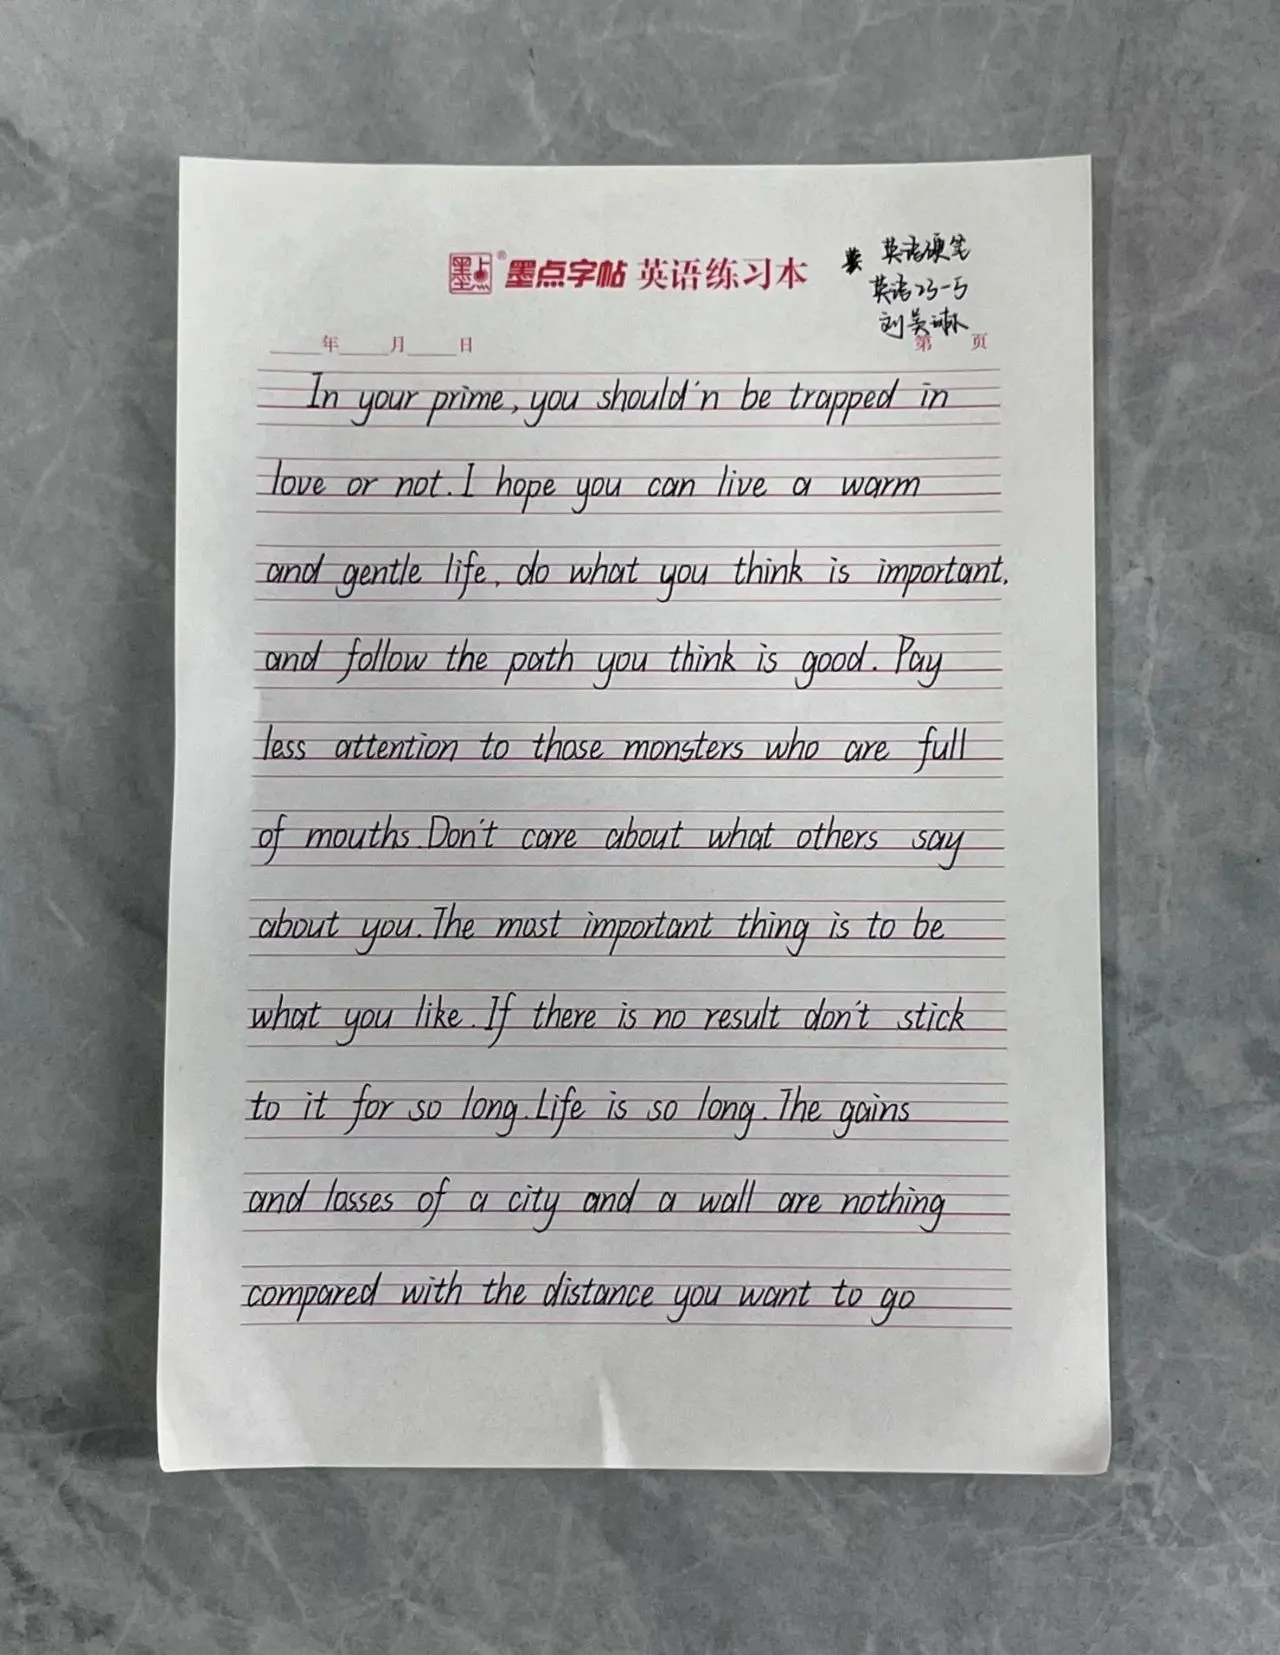 墨点® 墨点字帖 英语练习本
英语硬笔
英语23-5
刘昊琳
年 月 日
第 页
In your prime, you should'n be trapped in
love or not. I hope you can live a warm
and gentle life, do what you think is important,
and follow the path you think is good. Pay
less attention to those monsters who are full
of mouths. Don't care about what others say
about you. The most important thing is to be
what you like. If there is no result don't stick
to it for so long. Life is so long. The gains
and losses of a city and a wall are nothing
compared with the distance you want to go